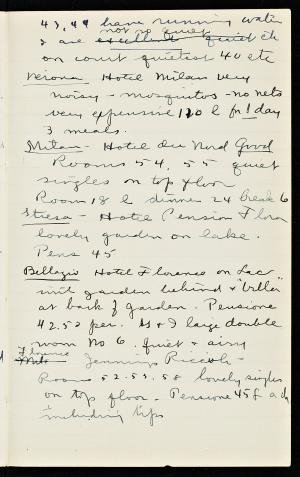 43, 44 have running water
not so quiet
& are excellent quiet etc
on court quietest 40 etc
Verona Hotel Milan very
noisy - mosquitos - no nets
very expensive 120 l for 1 day
3 meals.
Milan - Hotel du Nord Good
Rooms 54, 55 quiet
singles on top floor
Room 18 l dinner 24 break 6
Stresa - Hotel Pension Flora
lovely garden on lake.
Pens 45
Bellagio Hotel Florence on Lac
with garden behind & "Villa"
at back of garden. Pensione
42.50 per. large double
room No 6. quiet & airy
Florence
Jennings Riccioli -
Rooms 52-53-58 lovely singles
on top floor - Pensione 45 a day
including tips